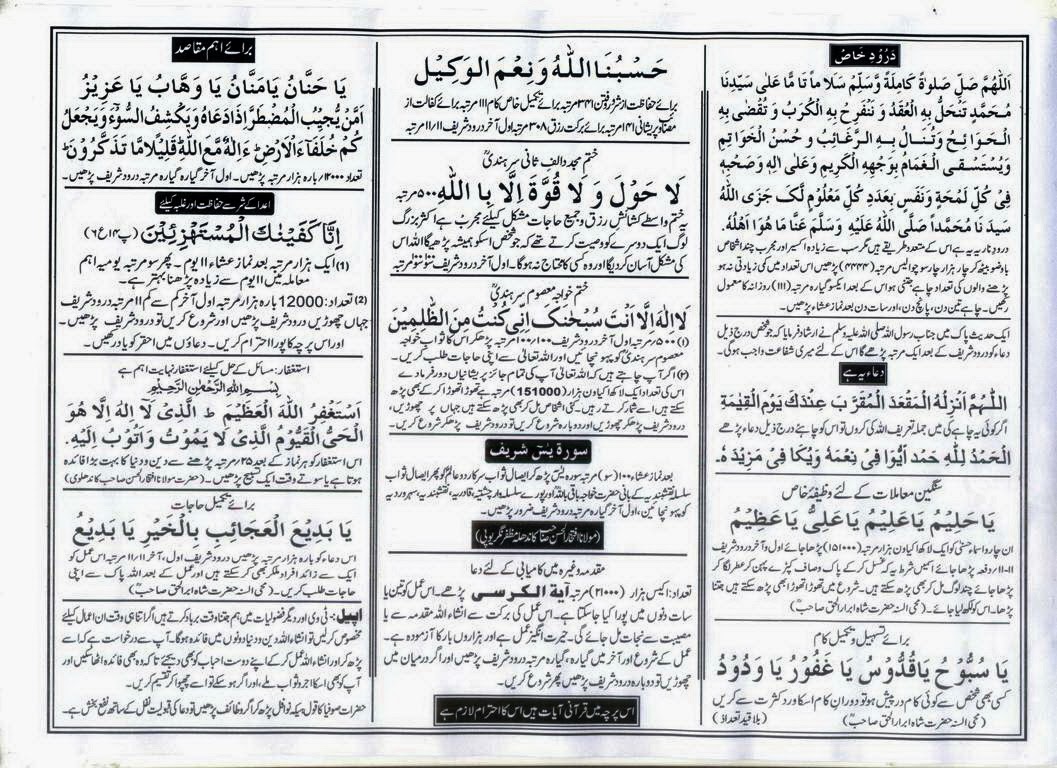 درود خاص
اَللّٰهُمَّ صَلِّ صَلوٰةً كَامِلَةً وَّسَلِّمْ سَلَا ماً تَا مًّا عَلٰى سَيِّدِنَا
مُحَمَّدٍ تَنْحَلُّ بِهِ الْعُقَدُ وَ تَنْفَرِجُ بِهِ الْكُرَبُ وَ تُقْضٰى بِهِ
الْحَوَا ئِجُ وَ تُنَالُ بِهِ الرَّغَائِبُ وَ حُسْنُ الْخَوَا تِمِ
وَ يُسْتَسْقَى الْغَمَامُ بِوَجْهِهِ الْكَرِيمِ وَ عَلٰى اٰلِهٖ وَ صَحْبِهٖ
فِىْ كُلِّ لَمْحَةٍ وَّ نَفَسٍ بِعَدَدِ كُلِّ مَعْلُوْمٍ لَّكَ جَزَى اللّٰهُ
سَيِّدَنَا مُحَمَّداً صَلَّى اللّٰهُ عَلَيْهِ وَ سَلَّمَ عَنَّا مَا هُوَا اَهْلُهُ.
درود ناریہ یہ ہے اس کے متعدد طریقے ہیں مگر سب سے زیادہ اکسیر اور مجرب چند اشخاص
باوضو بیٹھ کر چار ہزار چار سو چوالیس مرتبہ (۴۴۴۴) پڑھیں اس تعداد میں کمی زیادتی نہ ہو
پڑھنے والوں کی تعداد چاہے جتنی ہو اس کے بعد ایک سو گیارہ مرتبہ (۱۱۱) روزانہ کا معمول
رکھیں۔ چاہے تین دن، پانچ دن، اور سات دن بعد نماز عشاء پڑھیں۔
ایک حدیث پاک میں ہے جناب رسول اللہ صلی اللہ علیہ وسلم نے ارشاد فرمایا کہ جو شخص درج ذیل
دعاء کو درود شریف کے بعد ایک مرتبہ پڑھے گا اس کے لئے میری شفاعت واجب ہوگی۔
دعاء یہ ہے
اَللّٰهُمَّ اَنْزِلْهُ الْمَقْعَدَ الْمُقَرَّبَ عِنْدَكَ يَوْمَ الْقِيٰمَةِ
اگر کوئی یہ چاہے کہ میں جملہ تعریف اللہ کی کروں تو اس کو چاہئے درج ذیل دعاء پڑھے
اَلْحَمْدُ لِلّٰهِ حَمْدَ ا يُّوَا فِىْ نِعَمَهُ وَ يُكَا فِىْ مَزِيْدَهُ.
سنگین معاملات کے لئے وظیفۂ خاص
يَا حَلِيْمُ يَا عَلِيْمُ يَا عَلِىُّ يَا عَظِيْمُ
ان چار اسماء حسنیٰ کو ایک لاکھ اکیاون ہزار مرتبہ (۱۵۱۰۰۰) پڑھا جائے اول و آخر درود شریف
۱۱۔۱۱ دفعہ پڑھا جائے انہیں شرط یہ کہ غسل کر کے پاک و صاف کپڑے پہن کر عطر لگا کر
پڑھا جائے چند لوگ مل کر بھی پڑھ سکتے ہیں۔ شروع میں تھوڑا تھوڑا بھی پڑھ سکتے ہیں جتنا
پڑھا۔ اس کو لکھ لیا جائے۔ (محی السنہ حضرت شاہ ابرار الحق صاحبؒ)
برائے تسہیل و تکمیل کام
يَا سُبُّوْحُ يَا قُدُّوْسُ يَا غَفُوْرُ يَا وَدُوْدُ
کسی بھی شخص سے کوئی کام در پیش ہو تو دوران کام اسکا ورد کثرت سے کریں
(محی السنہ حضرت شاہ ابرار الحق صاحبؒ) (بلا قید تعداد)
حَسْبُنَا اللّٰهُ وَ نِعْمَ الْوَكِيْل
برائے حفاظت از شرور و فتن ۳۴۱ مرتبہ برائے تکمیل خاص کام ۱۱۱ مرتبہ برائے کفالت از
مصائب و پریشانی ۱۴۱ مرتبہ برائے برکت رزق ۳۰۸ مرتبہ اول آخر درود شریف ۱۱/۱۱ مرتبہ
ختم مجدد الف ثانی سرہندیؒ
لَا حَوْلَ وَ لَا قُوَّةَ اِلَّا بِا اللّٰهِ ۵۰۰ مرتبہ
یہ ختم واسطے کشائش رزق و جمیع حاجات مشکل کیلئے مجرب ہے اکثر بزرگ
لوگ ایک دوسرے کو وصیت کرتے تھے کہ جو شخص اسکو ہمیشہ پڑھیگا اللہ اس
کی مشکل آسان کر دیگا اور وہ کسی کا محتاج نہ ہوگا۔ اول آخر درود شریف سَو سَو مرتبہ
ختم خواجہ معصوم سرہندیؒ
لَا اِلٰهَ اِلَّا اَنْتَ سُبْحٰنَكَ اِنِّىْ كُنْتُ مِنَ الظّٰلِمِيْنَ
(۱) ۵۰۰ مرتبہ اول آخر درود ۱۰۰/۱۰۰ مرتبہ پڑھکر اس کا ثواب خواجہ
معصوم سرہندیؒ کو پہونچائیں اور اللہ تعالیٰ سے اپنی حاجات طلب کریں۔
(۲) اگر آپ چاہتے ہیں کہ اللہ تعالیٰ آپکی تمام جائز پریشانیاں دور فرمادے
اس کی تعداد ایک لاکھ اکیاون ہزار (151000) مرتبہ ہے تھوڑا تھوڑا کر کے بھی پڑھ
سکتے ہیں اسے شمار کرتے رہیں۔ کئی اشخاص مل کر بھی پڑھ سکتے ہیں جہاں پر چھوڑیں،
درود شریف پڑھکر چھوڑیں اور دوبارہ شروع کریں، تو درود شریف پڑھکر شروع کریں۔
سورہ یٰسٓ شریف
بعد نماز عشاء ۱۰۰ (سو) مرتبہ سورہ یٰسٓ پڑھ کر ایصال ثواب سرکار دو عالمﷺ کو پھر ایصال ثواب
سلسلہ نقشبندیہ کے بانی حضرت خواجہ باقی باللہ اور پورے سلسلہ وار چشتیہ، قادریہ، نقشبندیہ، سہروردیہ
کو پہونچائیں، اول آخر گیارہ گیارہ مرتبہ درود شریف ضرور پڑھیں۔
(مولانا افتخار الحسن صاحب کاندھلہ مظفر نگر یوپی)
مقدمہ وغیرہ میں کامیابی کے لئے دعا
تعداد: اکیس ہزار (۲۱۰۰۰) مرتبہ آية الكرسى پڑھے۔ اس عمل کو تین یا
سات دنوں میں پورا کیا جا سکتا ہے۔ اس عمل کی برکت سے انشاء اللہ مقدمہ سے یا
مصیبت سے نجات مل جائے گی۔ حیرت انگیز عمل ہے اور ہزاروں بار کا آزمودہ ہے۔
عمل کے شروع اور آخر میں گیارہ، گیارہ مرتبہ درود شریف پڑھیں اور اگر درمیان میں
چھوڑیں تو دوبارہ درود شریف پڑھیں پھر شروع کریں۔
اس پرچہ میں قرآنی آیات ہیں اس کا احترام لازم ہے
برائے اہم مقاصد
يَا حَنَّانُ يَا مَنَّانُ يَا وَهَّابُ يَا عَزِيْزُ
اَمَّنْ يُّجِيْبُ الْمُضْطَرَّ اِذَا دَعَاهُ وَيَكْشِفُ السُّوْٓءَ وَيَجْعَلُ
كُمْ خُلَفَآءَ الْاَرْضِ ءَاِلٰهٌ مَّعَ اللّٰهِ قَلِيْلًا مَّا تَذَكَّرُوْنَ
تعداد ۱۲۰۰۰/بارہ ہزار مرتبہ پڑھیں۔ اول آخر گیارہ گیارہ مرتبہ درود شریف پڑھیں۔
اعداء کے شر سے حفاظت اور غلبہ کیلئے
اِنَّا كَفَيْنٰكَ الْمُسْتَهْزِئِيْنَ (پ۱۴ع۶)
(۱) ایک ہزار مرتبہ بعد نماز عشاء ۱۱ یوم۔ پھر سو مرتبہ یومیہ اہم
معاملہ میں ۱۱ یوم سے زیادہ پڑھنا بہتر ہے۔
(2) تعداد: 12000 بارہ ہزار مرتبہ اول آخر کم سے کم ۱۱ مرتبہ درود شریف
جہاں چھوڑیں درود شریف پڑھیں اور شروع کریں تو درود شریف پڑھیں۔
اور اس پرچہ کا پورا احترام کریں۔ دعاؤں میں احقر کو یاد رکھیں۔
استغفار: مسائل کے حل کیلئے استغفار نہایت اہم ہے
بِسْمِ اللّٰهِ الرَّحْمٰنِ الرَّحِيْمِ
اَسْتَغْفِرُ اللّٰهَ الْعَظِيْمَ ط الَّذِىْ لَا اِلٰهَ اِلَّا هُوَ
الْحَىُّ الْقَيُّوْمُ الَّذِىْ لَا يَمُوْتُ وَ اَتُوْبُ اِلَيْهِ.
اس استغفار کو ہر نماز کے بعد ۲۵ مرتبہ پڑھنے سے دین و دنیا کا بہت بڑا فائدہ
ہوتا ہے یا سوتے وقت ایک تسبیح پڑھیں۔ (حضرت مولانا افتخار الحسن کاندھلوی)
برائے تکمیل حاجات
يَا بَدِيْعَ الْعَجَائِبِ بِالْخَيْرِ يَا بَدِيْعُ
اس دعاء کو بارہ ہزار مرتبہ پڑھیں درود شریف اول، آخر ۱۱/۱۱ مرتبہ اس عمل کو
ایک سے زائد افراد ملکر بھی کر سکتے ہیں اور عمل کے بعد اللہ پاک سے اپنی
حاجات طلب کریں۔ (محی السنہ حضرت شاہ ابرار الحق صاحبؒ)
اپیل:- ٹی وی اور دیگر فضولیات میں ہم جتنا وقت برباد کرتے ہیں اگر اتنا ہی وقت ان اعمال کیلئے
مخصوص کر لیں تو انشاء اللہ دین و دنیا دونوں میں فائدہ ہوگا۔ آپ سے درخواست ہے کہ اسے
پڑھ کر اور انشاء اللہ عمل کر کے اپنے دوست احباب کو بھی دیجئے تاکہ وہ بھی فائدہ اٹھا سکیں اور
آپ کو بھی اسکا اجر و ثواب ملے، اور اگر ہو سکے تو اسے چھپوا کر تقسیم کریں۔
حضرات صوفیا کا قول ہیکہ نوافل پڑھ کر اگر وظائف پڑھیں تو دعا کی قبولیت نفل کے ساتھ نفع بخش ہے۔